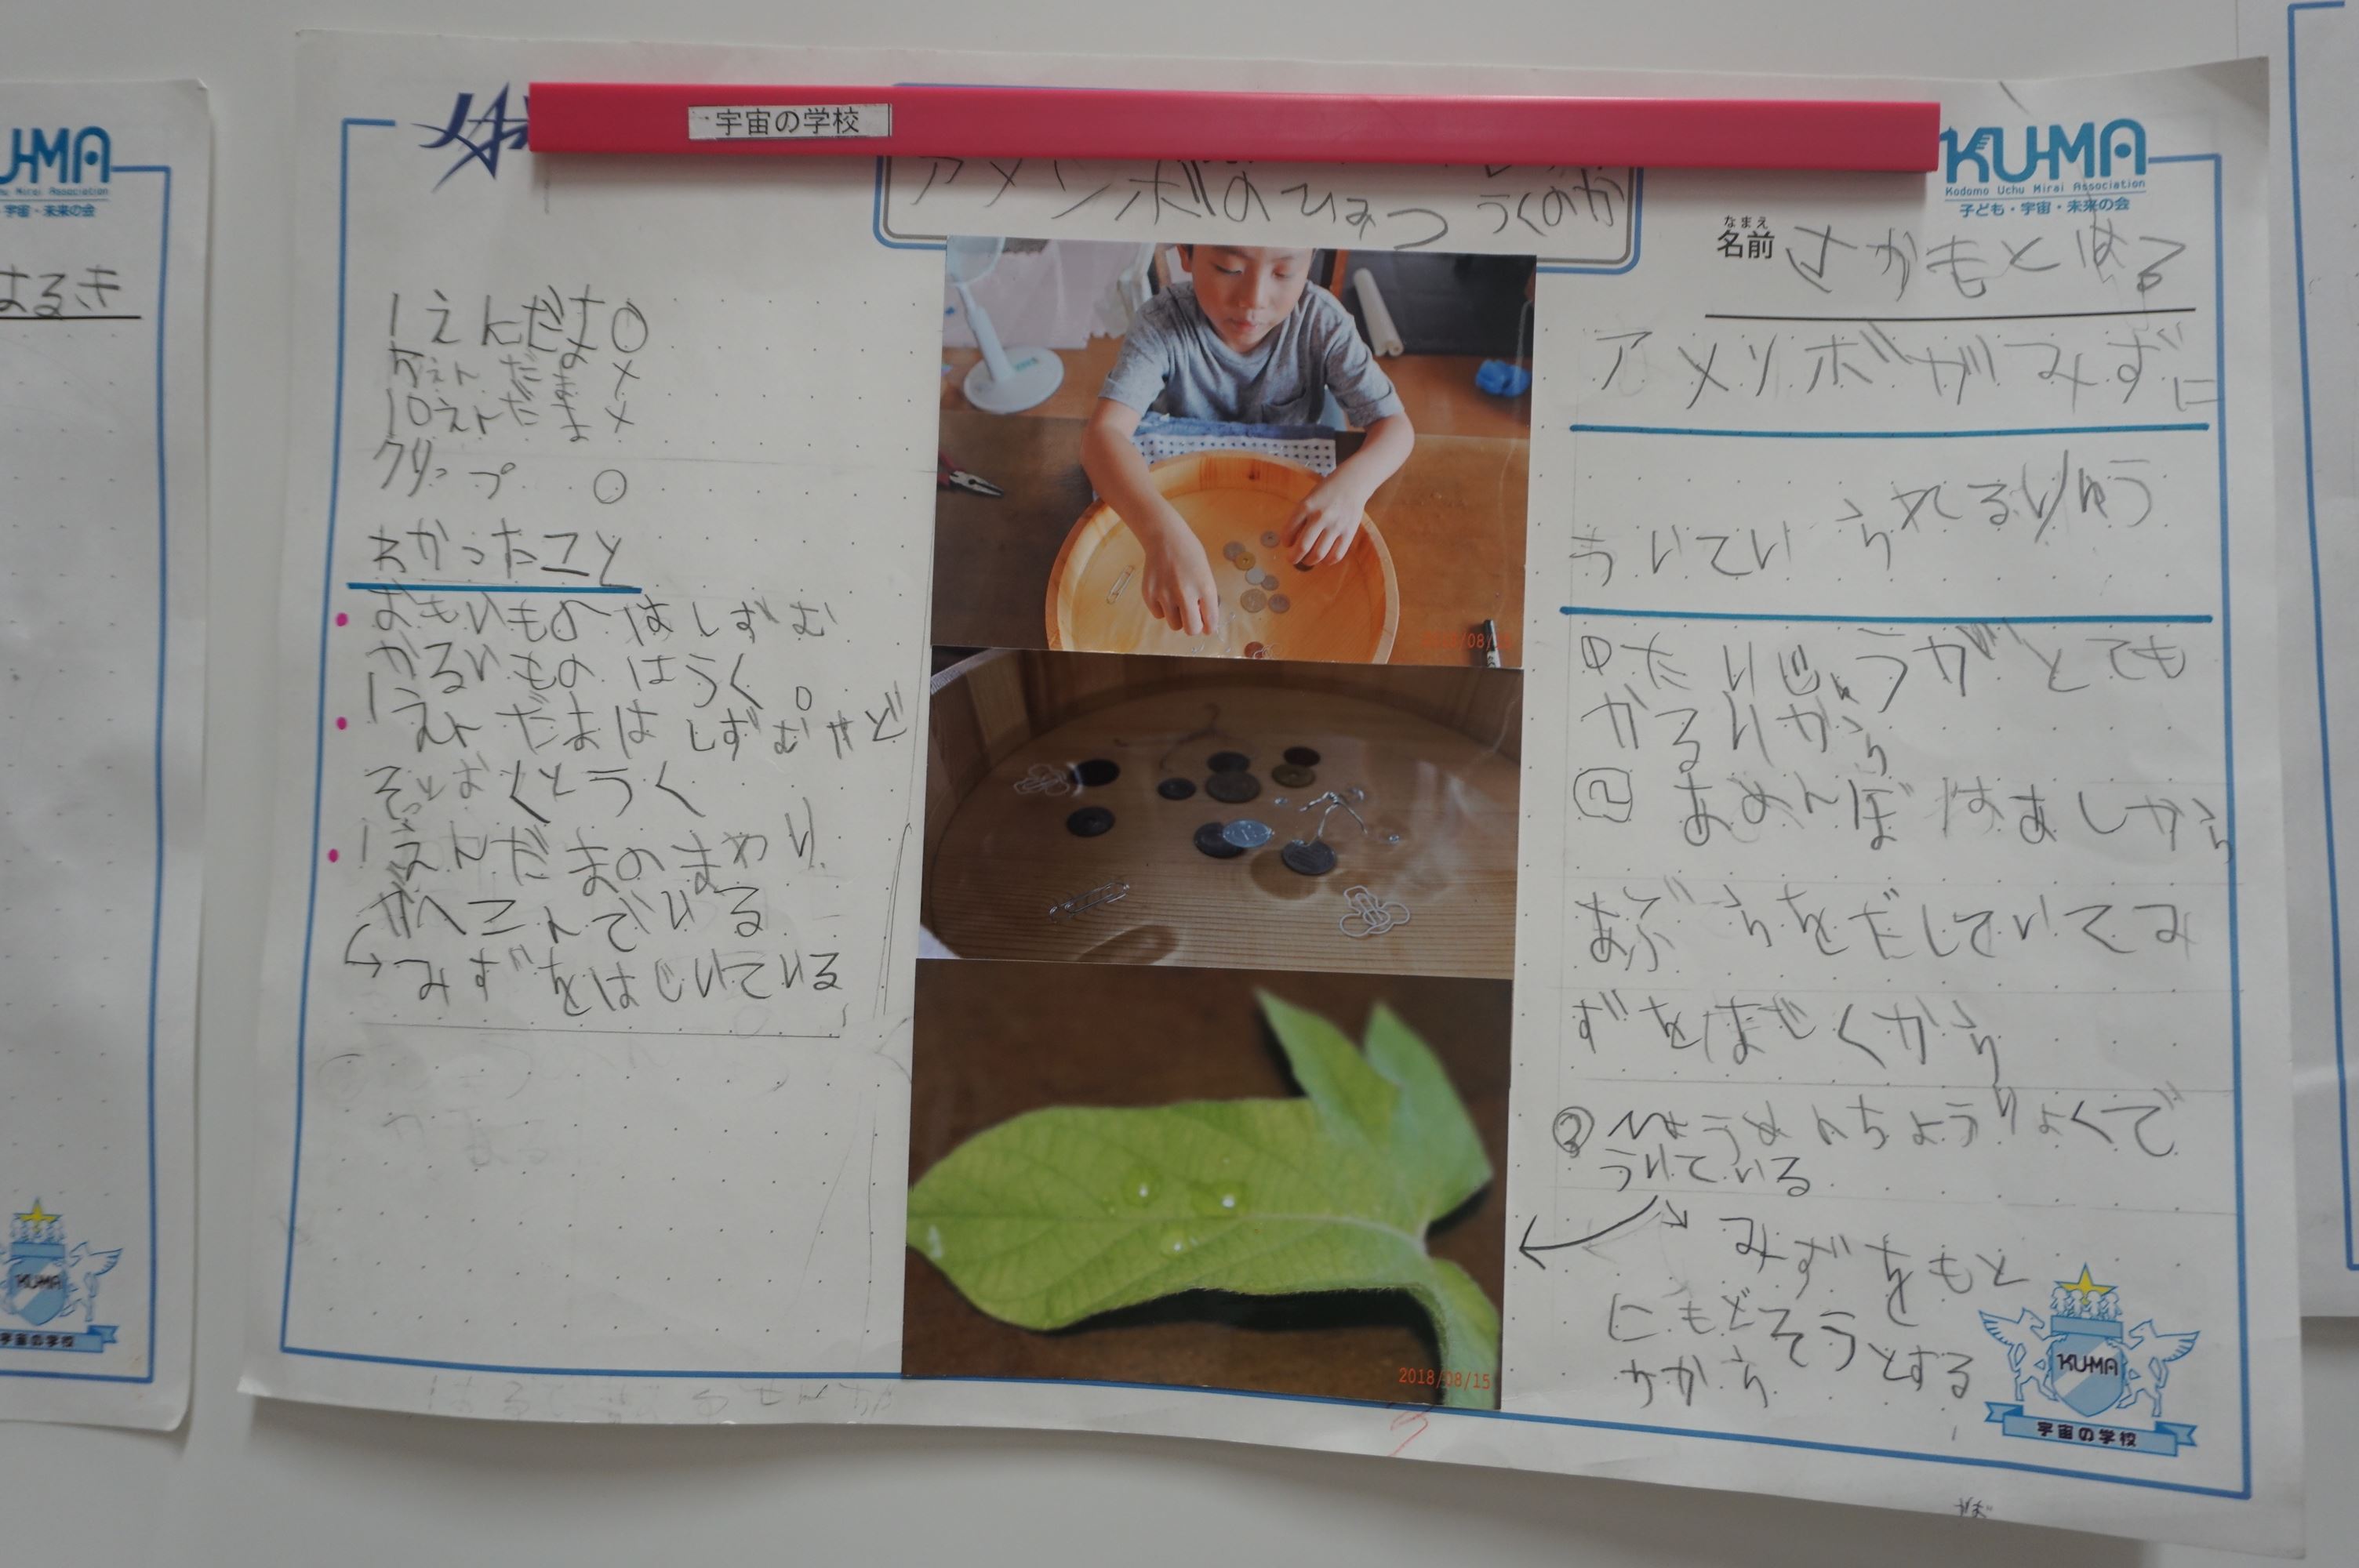 宇宙の学校
KUMA
Kodomo Uchu Mirai Association
子ども・宇宙・未来の会
アメンボのひみつ
うくのか
なまえ
名前 さかもとはる
アメンボがみずに
ういていられるりゆう
①たいじゅうがとても
かるいから
②あめんぼはあしから
あぶらをだしていてみ
ずをはじくから
③ひょうめんちょうりょくで
ういている
みずをもと
にもどそうとする
ちから
1えんだま○
5えんだま×
10えんだま×
クリップ ○
わかったこと
おもいものはしずむ
かるいものはうく。
1えんだまはしずむけど
そっとおくとうく
1えんだまのまわり
がへこんでいる
みずをはじいている
2018/08/15
KUMA
宇宙の学校
UMA
Mirai Association
宇宙・未来の会
はるき
KUMA
宇宙の学校